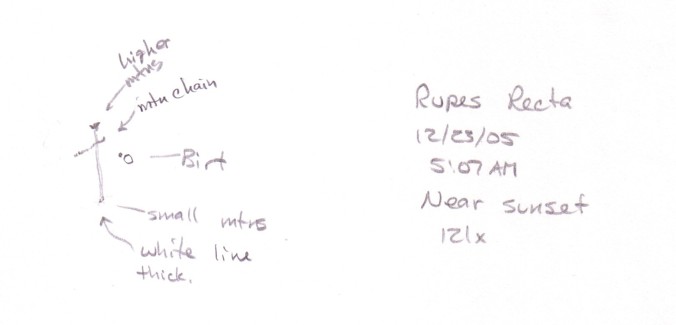 higher
mtns
mtn chain
Birt
small mtns
white line
thick.
Rupes Recta
12/23/05
5:07 AM
Near sunset
121x